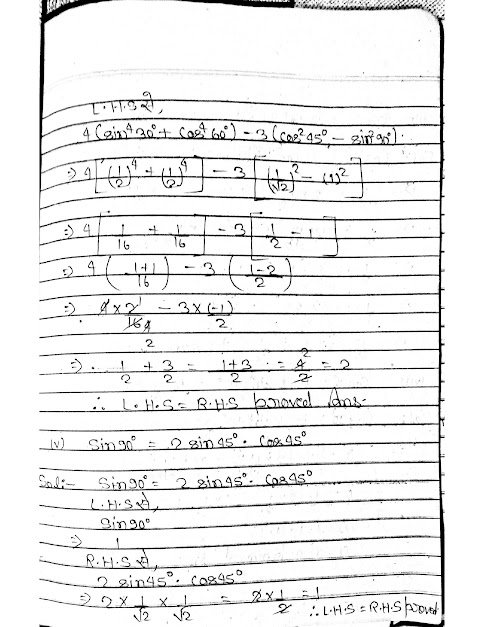 L.H.S से,
4 (sin⁴30° + cos⁴60°) - 3 (cos²45° - sin²90°).
⇒ 4 [(1/2)⁴ + (1/2)⁴] - 3 [(1/√2)² - (1)²]
⇒ 4 [1/16 + 1/16] - 3 [1/2 - 1]
⇒ 4 ((1+1)/16) - 3 ((1-2)/2)
⇒ 4×2/16 - 3×(-1)/2
⇒ 1/2 + 3/2 = (1+3)/2 = 4/2 = 2
∴ L.H.S = R.H.S proved Ans-
(v) Sin90° = 2 sin45°. Cos45°
Sol:- Sin90° = 2 sin45°. Cos45°
L.H.S से,
Sin90°
⇒ 1
R.H.S से,
2 sin45°. Cos45°
⇒ 2 × 1/√2 × 1/√2 = 2×1/2 = 1 ∴ L.H.S = R.H.S proved